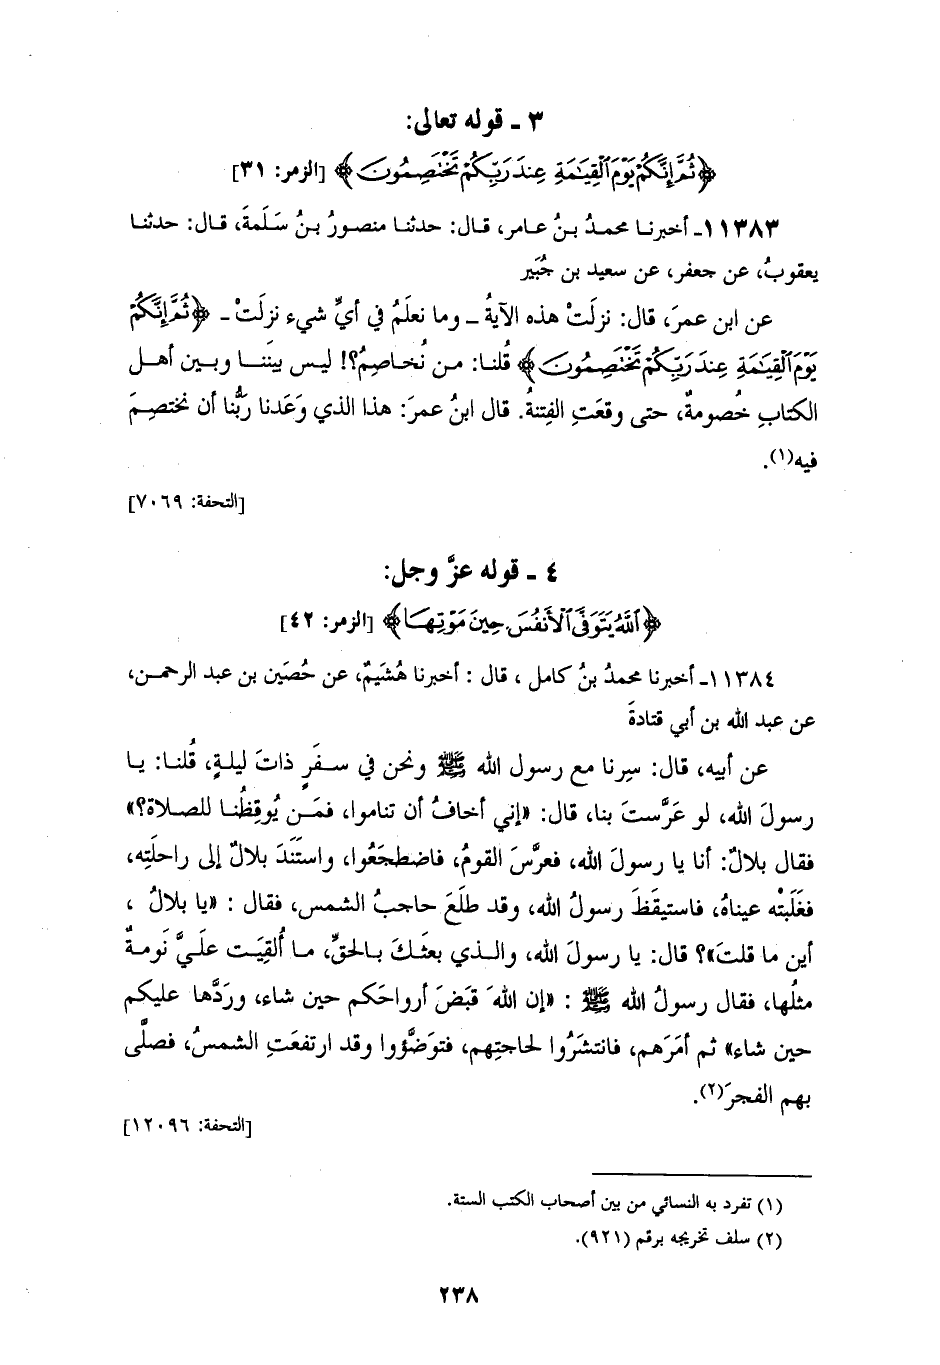 ٣ ـ قوله تعالى:
﴿ثُمَّ إِنَّكُمْ يَوْمَ ٱلْقِيَـٰمَةِ عِندَ رَبِّكُمْ تَخْتَصِمُونَ﴾ [الزمر: ٣١]
١١٣٨٣ـ أخبرنـا محمدُ بـنُ عـامر، قـال: حدثنـا منصـورُ بـنُ سَـلَمةَ، قـال: حدثنـا
يعقوبُ، عن جعفر، عن سعيد بن جُبَير
عن ابن عمرَ، قال: نزلَتْ هذه الآيةُ ـ وما نعلَمُ في أيِّ شيء نزلَتْ ـ ﴿ثُمَّ إِنَّكُمْ
يَوْمَ ٱلْقِيَـٰمَةِ عِندَ رَبِّكُمْ تَخْتَصِمُونَ﴾ قُلنـا: مـن نُخـاصِمُ؟! ليـس بينَنـا وبـين أهـل
الكتابِ خُصومةٌ، حتى وقعَتِ الفِتنةُ. قال ابنُ عمرَ: هذا الذي وَعَدنا ربُّنا أن نختصِمَ
فيه(١).
[التحفة: ٧٠٦٩]
٤ ـ قوله عزَّ وجل:
﴿ٱللَّهُ يَتَوَفَّى ٱلْأَنفُسَ حِينَ مَوْتِهَـا﴾ [الزمر: ٤٢]
١١٣٨٤ـ أخبرنا محمدُ بنُ كامل ، قال : أخبرنا هُشَيمٌ، عن حُصَين بن عبد الرحمـن،
عن عبد الله بن أبي قتادةَ
عن أبيه، قال: سِرنا مع رسول الله ﷺ ونحن في سـفَرٍ ذاتَ ليلـةٍ، قُلنـا: يـا
رسولَ الله، لو عَرَّستَ بنا، قال: «إني أخافُ أن تناموا، فمَـن يُوقِظُنـا للصـلاة؟»
فقال بلالٌ: أنا يا رسولَ الله، فعرَّسَ القومُ، فاضطجَعُوا، واستَنَدَ بلالٌ إلى راحلَتِه،
فغَلَبَتْه عيناهُ، فاستيقَظَ رسولُ الله، وقد طلَعَ حاجبُ الشمس، فقال : «يا بلالُ ،
أين ما قلتَ»؟ قال: يا رسولَ الله، والـذي بعثَـكَ بـالحقِّ، مـا أُلقِيَـت علَـيَّ نَومـةٌ
مثلُها، فقال رسولُ الله ﷺ : «إن اللهَ قبَضَ أرواحَكم حين شاء، وردَّها عليكم
حين شاء» ثم أمَرَهم، فانتشَرُوا لحاجتِهم، فتوَضَّؤوا وقد ارتفعَتِ الشمسُ، فصلَّى
بهم الفجرَ(٢).
[التحفة: ١٢٠٩٦]
(١) تفرد به النسائي من بين أصحاب الكتب الستة.
(٢) سلف تخريجه برقم (٩٢١).
٢٣٨